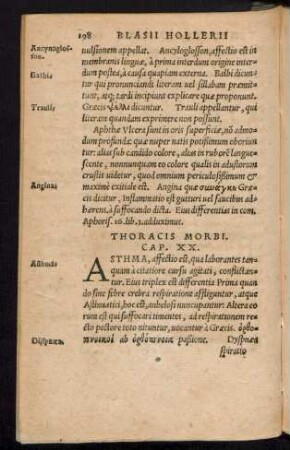 198 BLASII HOLLERII
Ancyloglosson.
uulsionem appellat. Ancyloglosson, affectio est in
membranis linguæ, à prima interdum origine inter
dum postea, à causa quapiam externa. Balbi dicun-
Balbis
tur qui pronunciandi literam uel syllabam præmit-
tunt, atq; tardi incipiunt explicare quæ proponunt.
Græcis ψελλοὶ dicuntur. Trauli appellantur, qui
Traulis
literam quandam exprimere non possunt.
Aphthæ Vlcera sunt in oris superficie, nõ admo-
dum profundæ quæ nuper natis potissimum oboriun
tur: alias sub candido colore, alias in rubore langue-
scente, nonnunquam eo colore qualis in adustorum
crustis uidetur, quod omnium periculosissimum et
maximè exitiale est. Angina quæ συνάγχη Græcis
Angina:
dicitur, Inflammatio est gutturi uel faucibus ad-
hærens, à suffocando dicta. Eius differentias in com.
Aphoris. 16. lib. 1. adduximus.
THORACIS MORBI.
CAP. XX.
Asthmatis
ASTHMA, affectio est, qua laborantes tan
quam à citatiore cursu agitati, conflictan-
tur. Eius triplex est differentia Prima quan
do sine febre crebra respiratione affliguntur, atque
Asthmatici, hoc est, anhelosi nuncupantur: Altera eo
rum est qui suffocari timentes, ad respirationem
recto pectore toto nituntur, uocantur à Græcis. ὀρθο-
πνοικοὶ ab ὀρθόπνοια passione. Dyspnœa
Dyspnœa.
spiratio